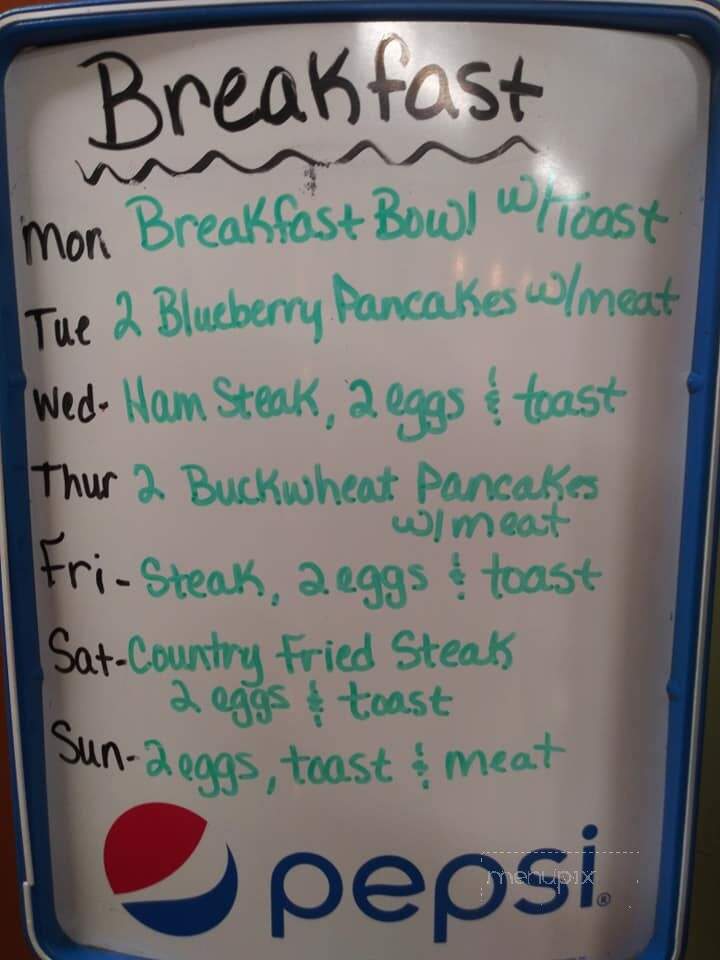 Breakfast
Mon Breakfast Bowl w/Toast
Tue 2 Blueberry Pancakes w/meat
Wed- Ham Steak, 2 eggs & toast
Thur 2 Buckwheat Pancakes
w/meat
Fri- Steak, 2 eggs & toast
Sat- Country Fried Steak
2 eggs & toast
Sun- 2 eggs, toast & meat
pepsi®
menupix